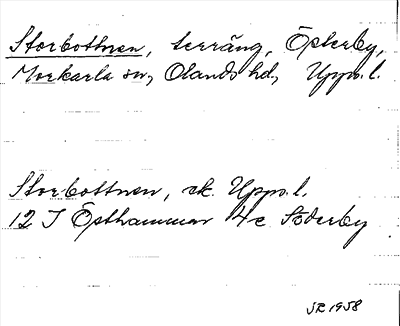 Storbottnen, terräng, Österby,
Morkarla sn, Olands hd, Upps. l.
Storbottnen, ek. Upps. l.
12 I Östhammar 4c Söderby
SR 1958